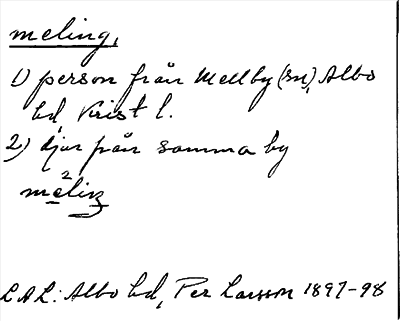 meling,
1) person från Mellby (sn), Albo
hd, Krist l.
2) djur från samma by
mèling
LAL: Albo hd, Per Larsson 1897-98